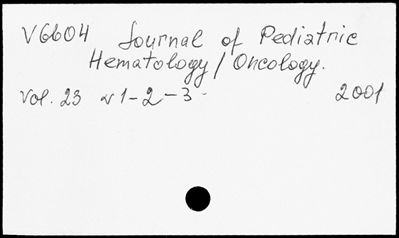 V6604 Journal of Pediatric
Hematology/Oncology.
Vol. 23 N 1-2-3 2001